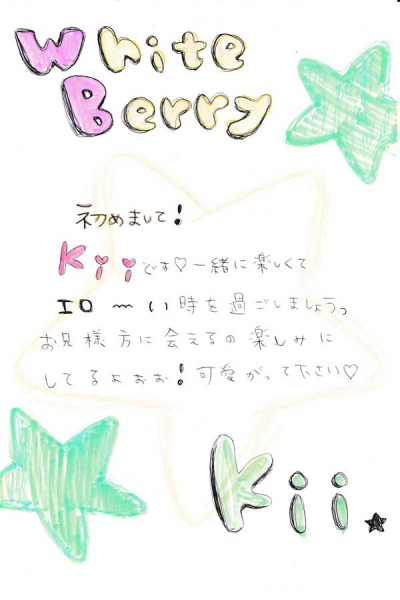 White
Berry
初めまして!
Kiiです♡一緒に楽しくて
エロ〜い時を過ごしましょうっ
お兄様方に会えるの楽しみに
してるよぉぉ!可愛がって下さい♡
Kii.